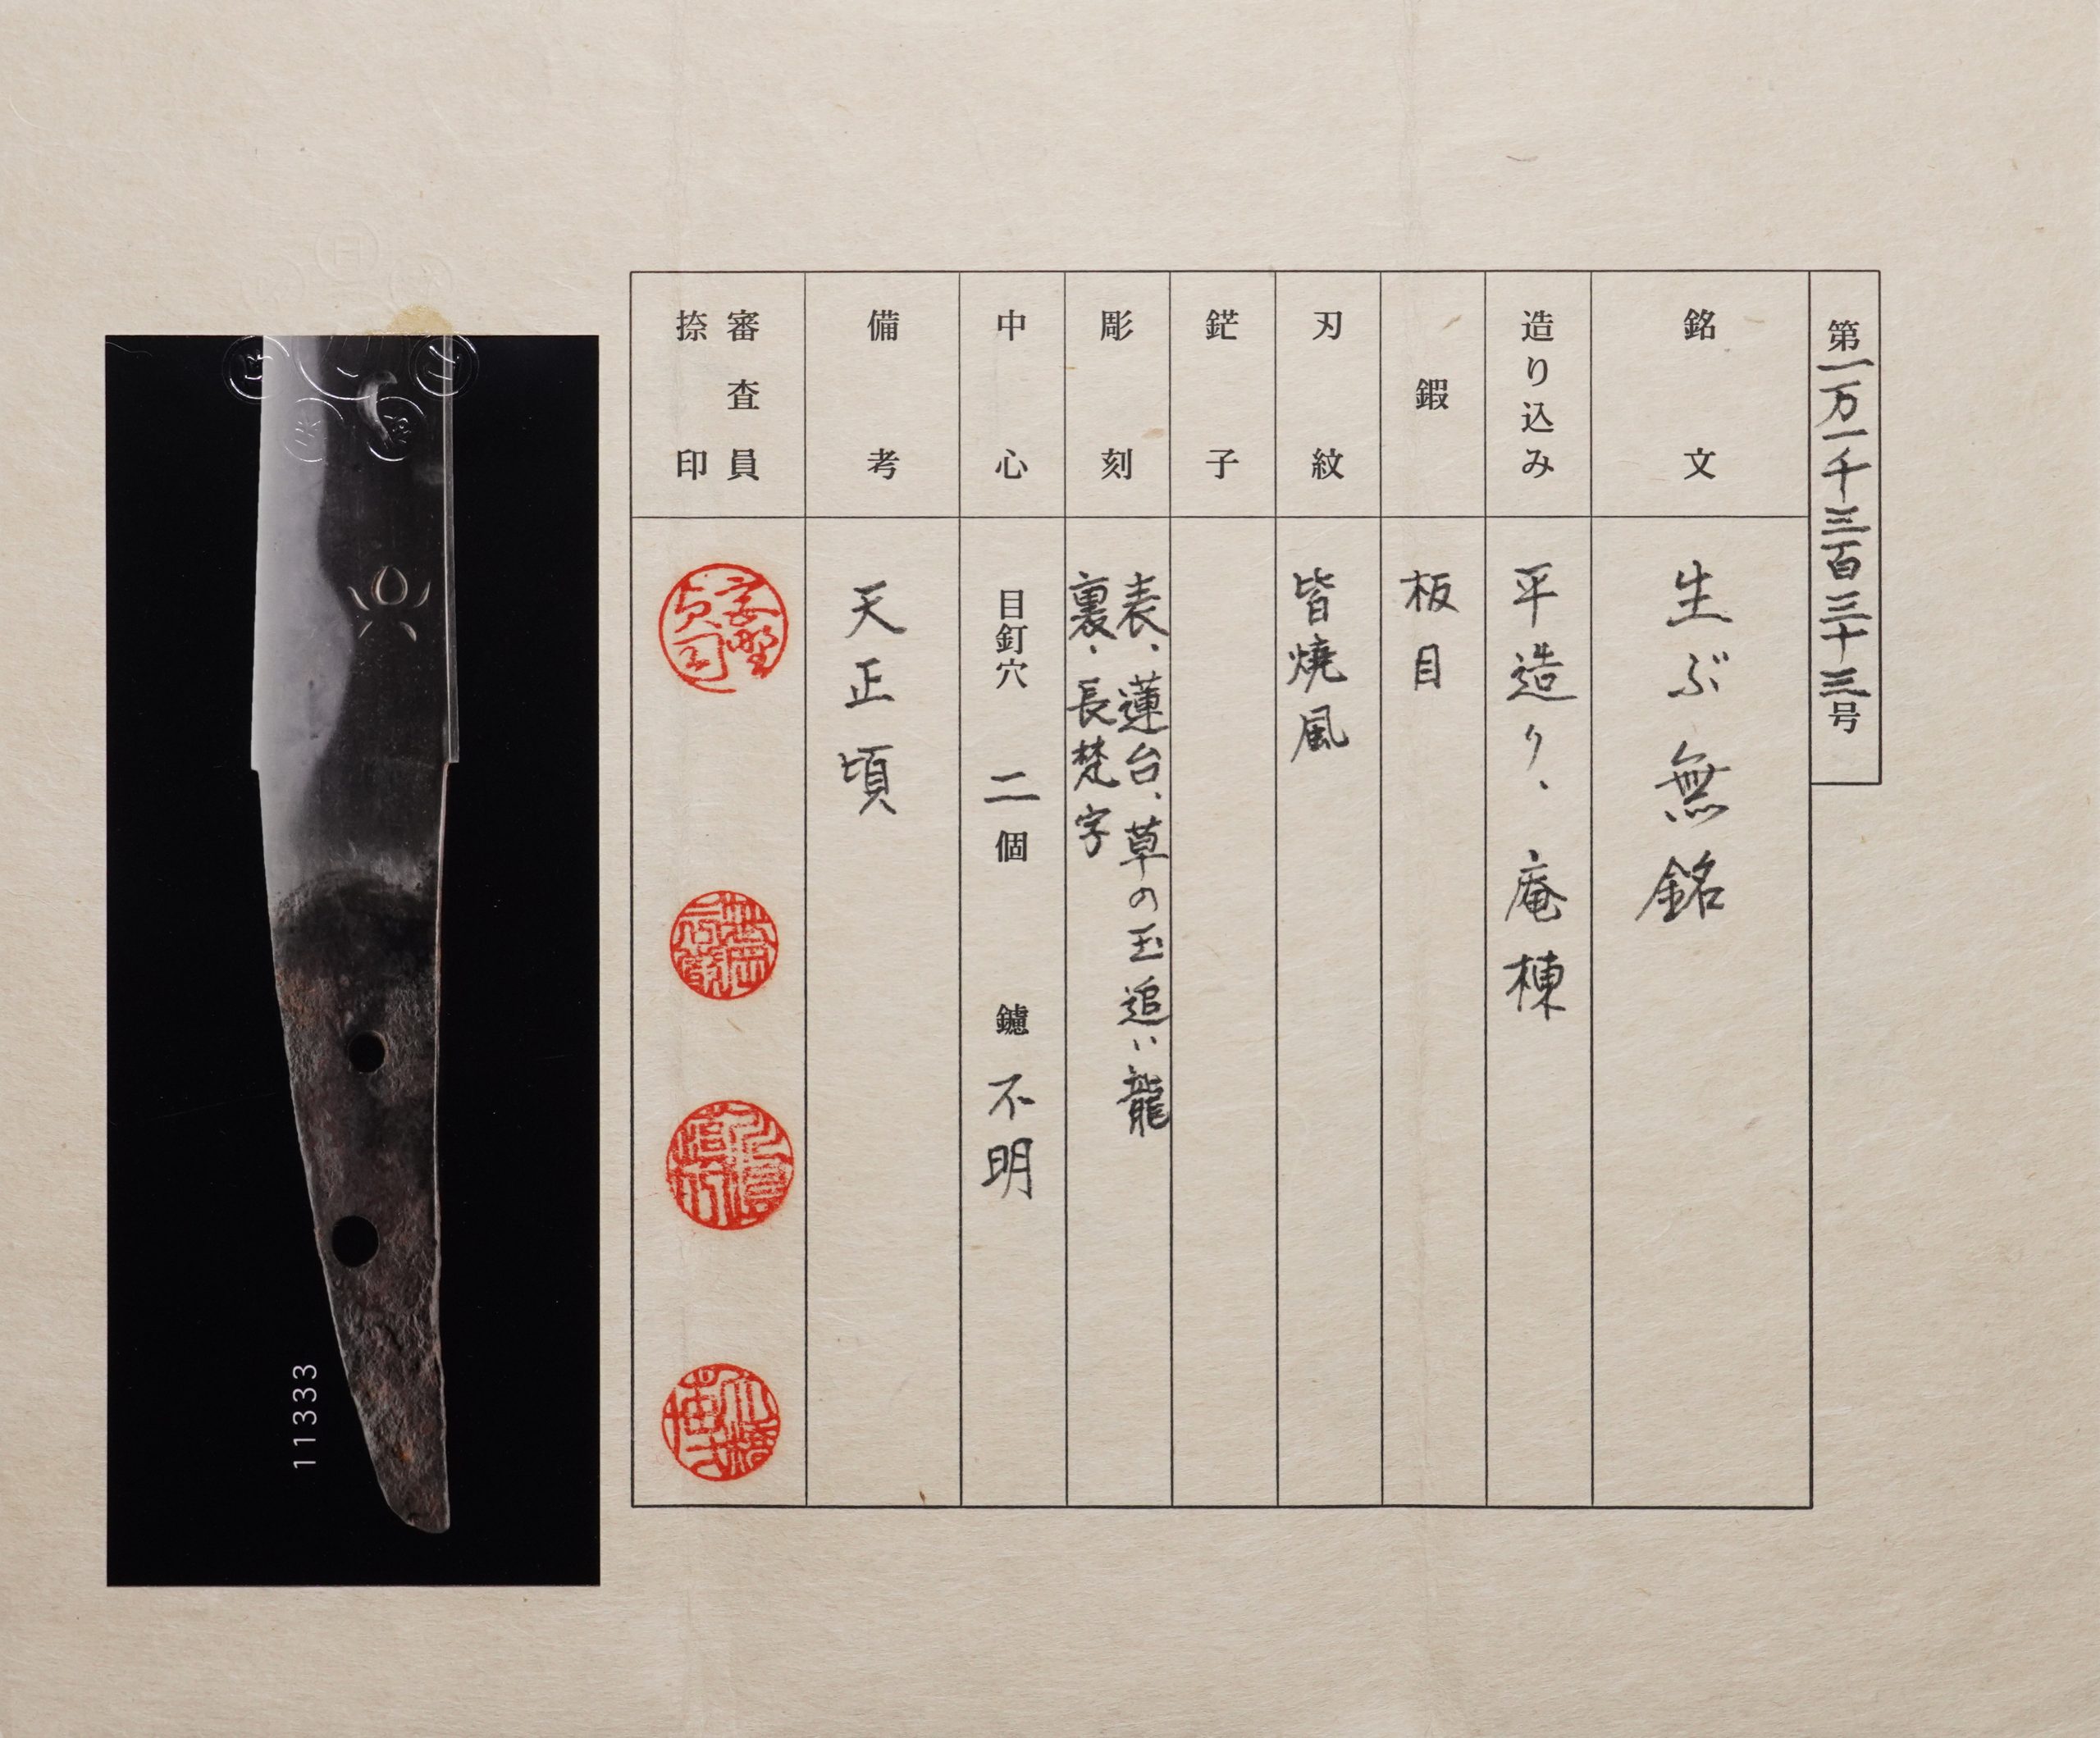 第一万一千三百三十三号
銘文
生ぶ無銘
造り込み
平造り、庵棟
鍜
板目
刃紋
皆焼風
鋩子
彫刻
表、蓮台、草の玉追い龍
裏、長梵字
中心
目釘穴 二個 鑢 不明
備考
天正頃
審査員
捺印
11333